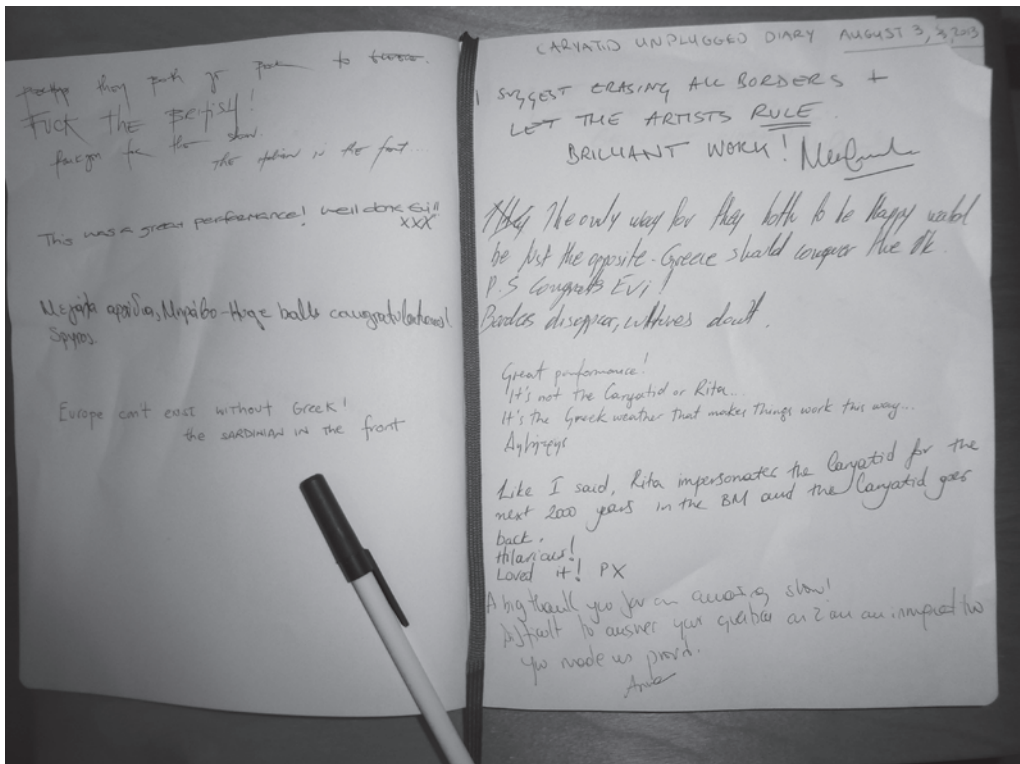 they both go back to
FUCK THE BRITISH!
for the show.
the italian in the front...
This was a great performance! Well done Evi!!
XXX
Μεγάλα αρχίδια, Μπράβο - Huge balls congratulations!
Spyros
Europe can't exist without Greek!
the SARDINIAN IN the front
CARYATID UNPLUGGED DIARY AUGUST 3, 2013
I SUGGEST ERASING ALL BORDERS +
LET THE ARTISTS RULE.
BRILLIANT WORK!
The only way for they both to be Happy would
be just the opposite - Greece should conquer the Uk.
P.S Congrats Evi!
Borders disappear, cultures don't.
Great performance!
It's not the Caryatid or Rita...
It's the Greek weather that makes things work this way...
Like I said, Rita impersonates the Caryatid for the
next 2000 years in the BM and the Caryatid goes
back.
Hilarious!
Loved it! PX
A big thank you for an amazing show!
Difficult to answer your question as I am an immigrant too
you made us proud.
Anna